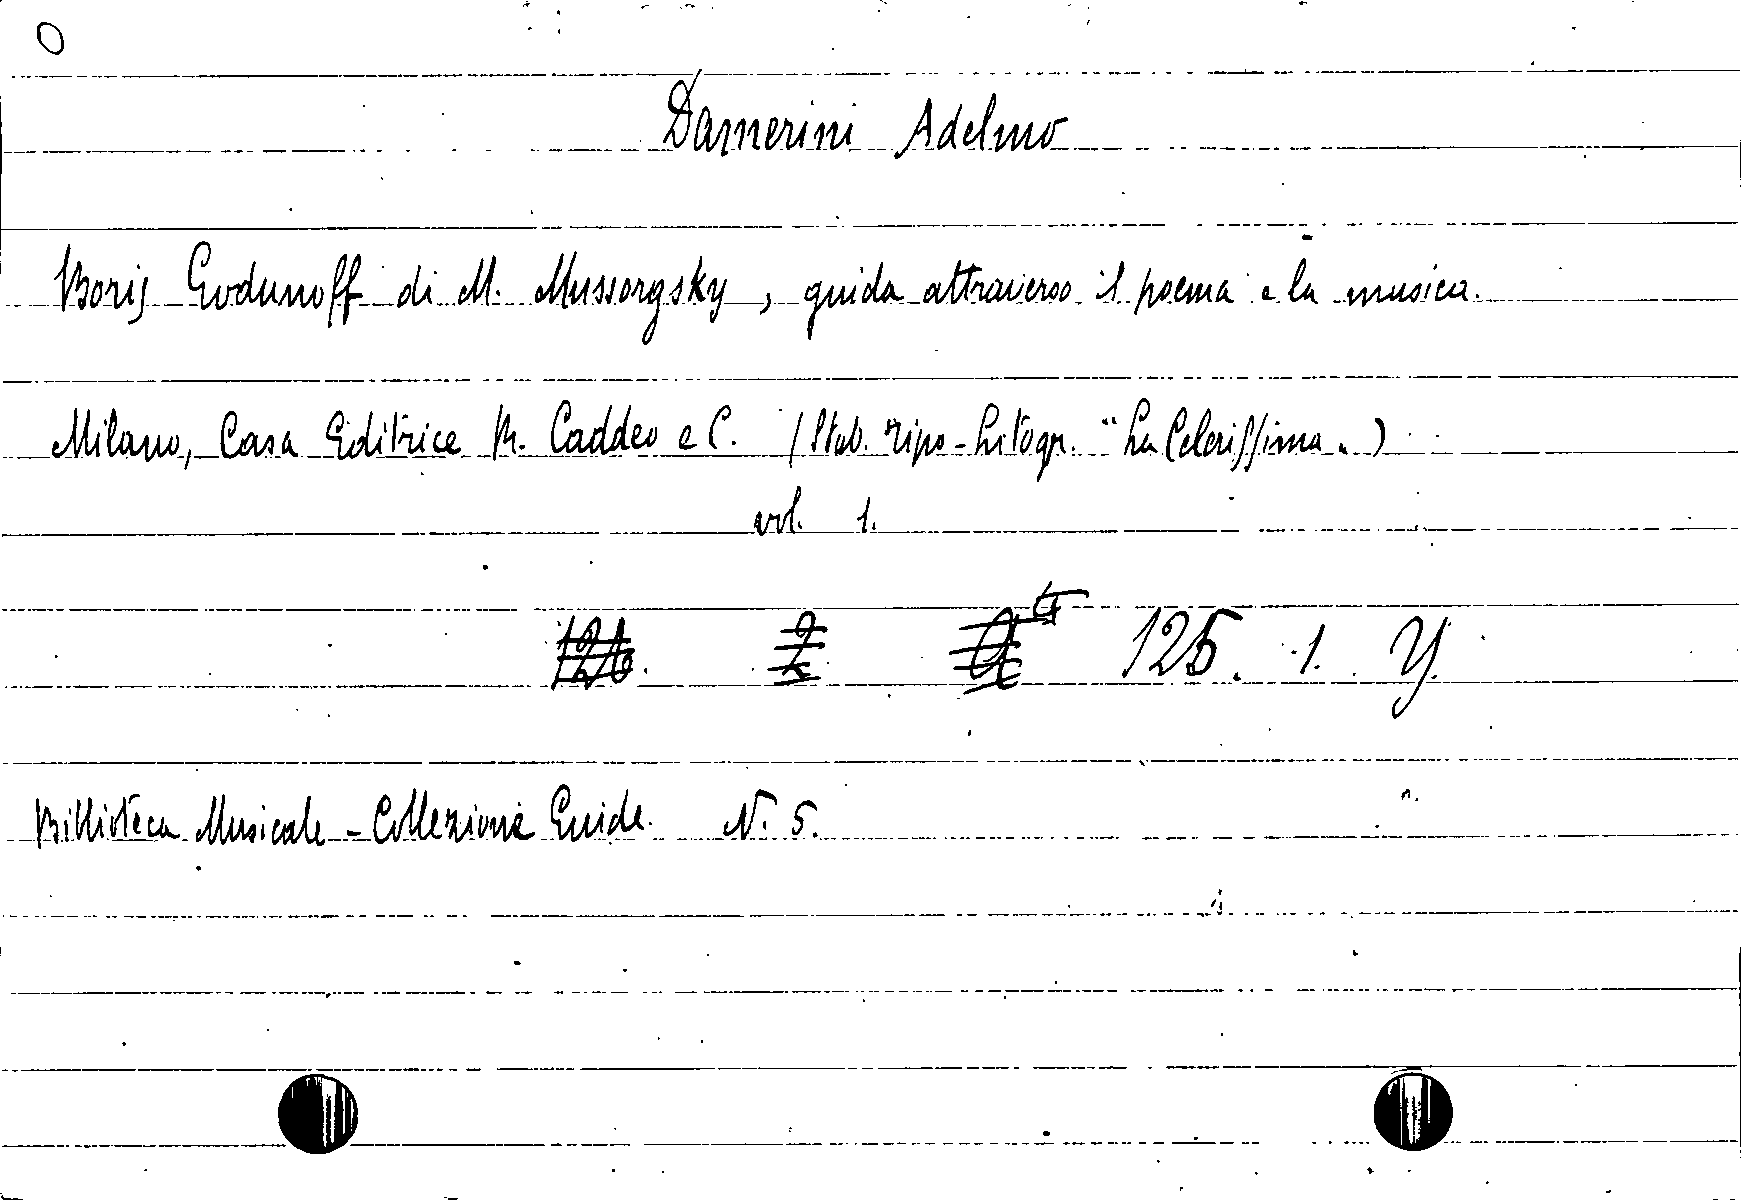 Damerini Adelmo
Boris Godunoff di M. Mussorgsky, guida attraverso il poema e la musica.
Milano, Casa Editrice R. Caddeo e C. (Stab. Tipo-Litogr. "La Celerissima")
vol. 1.
125. 1. Y.
Biblioteca Musicale - Collezione Guide. N. 5.